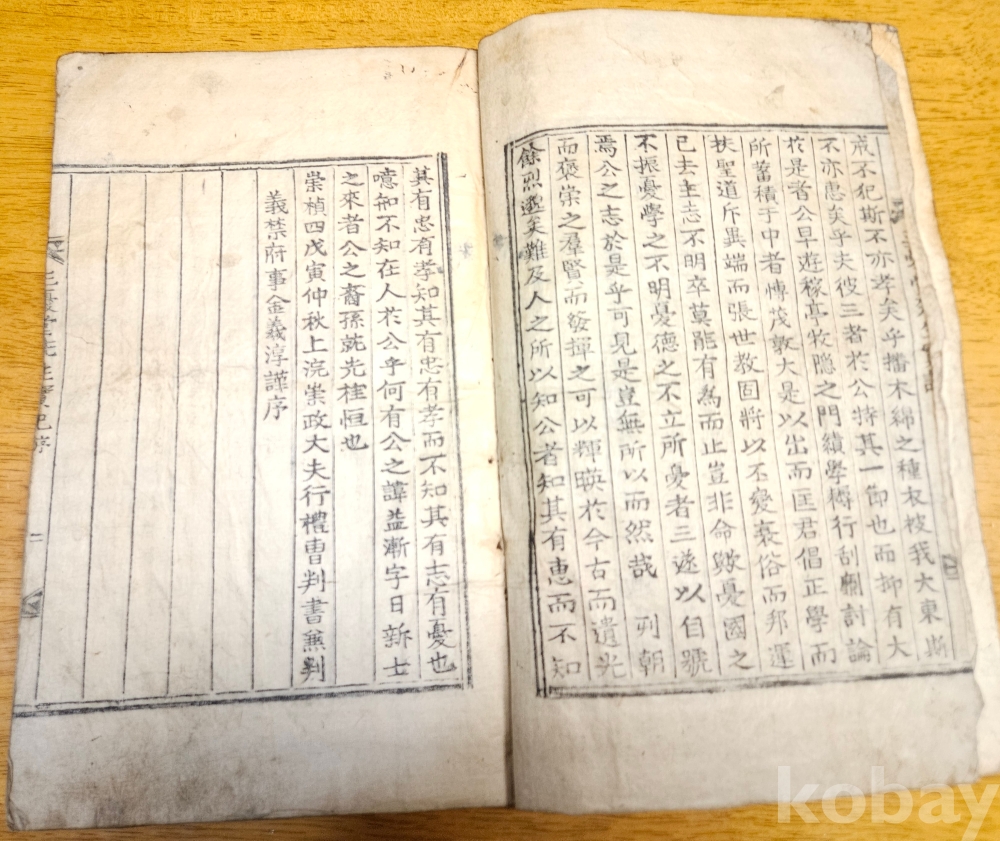 戒不犯斯不亦孝矣乎播木綿之種衣被我大東斯
不亦惠矣乎夫彼三者於公特其一節也而抑有大
於是者公早遊稼亭牧隐之門績學縟行刮劘討論
所蓄積于中者愽茂敦大是以出而匡君倡正學而
扶聖道斥異端而張世教固將以丕變衰俗而邦運
已去主志不明卒莫能有爲而止豈非命歟憂國之
不振憂學之不明憂德之不立所憂者三遂以自號
焉公之志於是乎可見是豈無所以而然哉 列朝
而褒崇之羣賢而發揮之可以輝暎於今古而遺光
餘烈邈矣難及人之所以知公者知其有惠而不知
其有忠有孝知其有忠有孝而不知其有志有憂也
噫知不知在人於公乎何有公之諱益漸字日新士
之來者公之裔孫兟先桂恒也
崇禎四戊寅仲秋上浣崇政大夫行禮曺判書兼判
義禁府事金羲淳謹序
三憂堂先生實記序
kobay